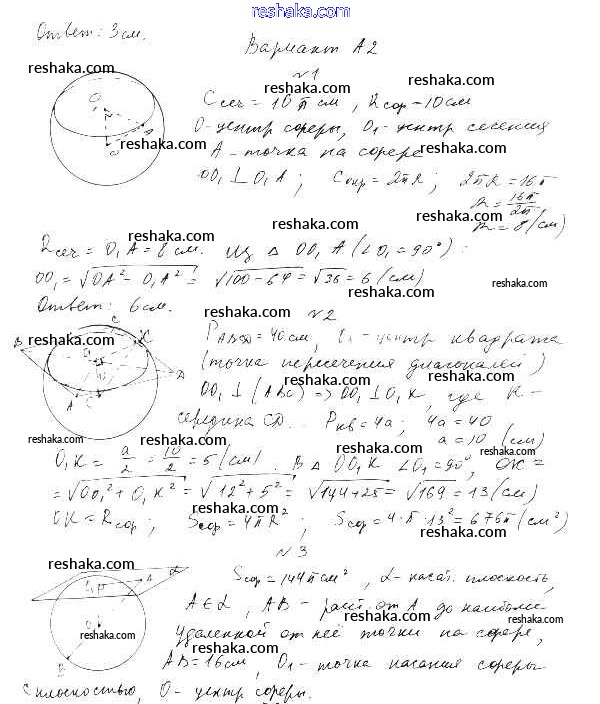 reshaka.com
Ответ: 3 см.
Вариант А2
№1
reshaka.com
reshaka.com
Cсеч = 10π см, Rсф = 10 см
O - центр сферы, O₁ - центр сечения
reshaka.com
A - точка на сфере
reshaka.com
OO₁ ⊥ O₁A; Cокр = 2πR; 2πR = 16π
R = 16π/2π
R = 8 (см)
reshaka.com
Rсеч = O₁A = 8 см. Из Δ OO₁A (∠O₁ = 90°):
OO₁ = √OA² - O₁A² = √100-64 = √36 = 6 (см)
reshaka.com
Ответ: 6 см.
reshaka.com
№2
reshaka.com
C K
B
PABCD = 40 см, O₁ - центр квадрата
(точка пересечения диагоналей)
reshaka.com
reshaka.com
D
A
OO₁ ⊥ (ABC) => OO₁ ⊥ O₁K, где K -
середина CD. Pкв = 4a; 4a = 40
reshaka.com
reshaka.com
a = 10 (см)
reshaka.com
O₁K = a/2 = 10/2 = 5 (см). В Δ OO₁K ∠O₁ = 90°, OK =
reshaka.com
= √OO₁² + O₁K² = √12² + 5² = √144+25 = √169 = 13 (см)
reshaka.com
OK = Rсф; Sсф = 4πR²; Sсф = 4·π·13² = 676π (см²)
reshaka.com
№3
reshaka.com
reshaka.com
α
A
Sсф = 144π см², α - касат. плоскость,
reshaka.com
A ∈ α, AB - расст. от A до наиболее
reshaka.com
reshaka.com
удаленной от неё точки на сфере,
B
AB = 16 см, O₁ - точка касания сферы
reshaka.com
reshaka.com
с плоскостью, O - центр сферы.